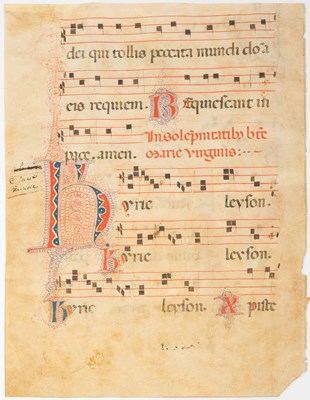 dei qui tollis peccata mundi dona
eis requiem. Requiescant in
pace. amen. In solepnitatib9 bte
marie virginis:
kyrie leyson.
kyrie leyson.
kyrie leyson. Xpiste